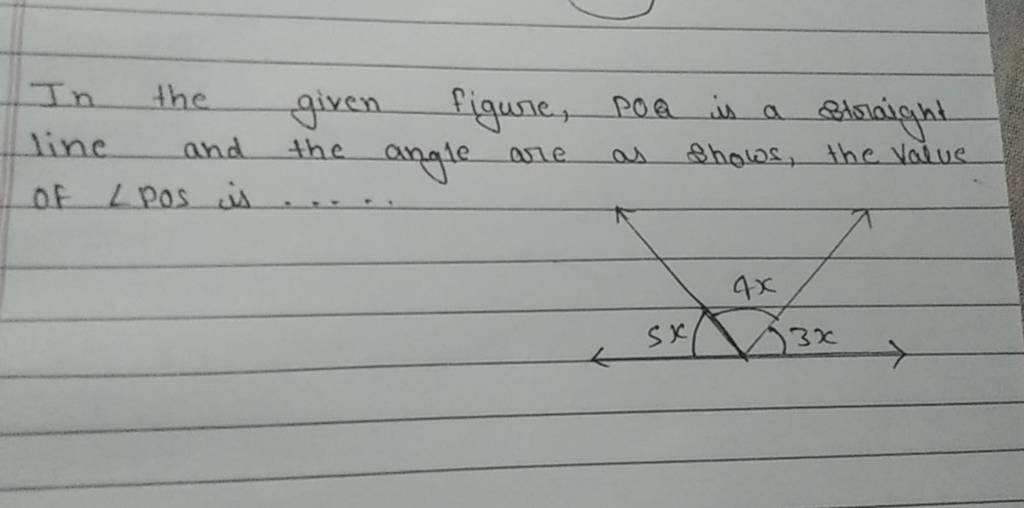 In the given figure, POQ is a straight
line and the angle are as shows, the value
OF ∠POS is .....
4x
5x
3x